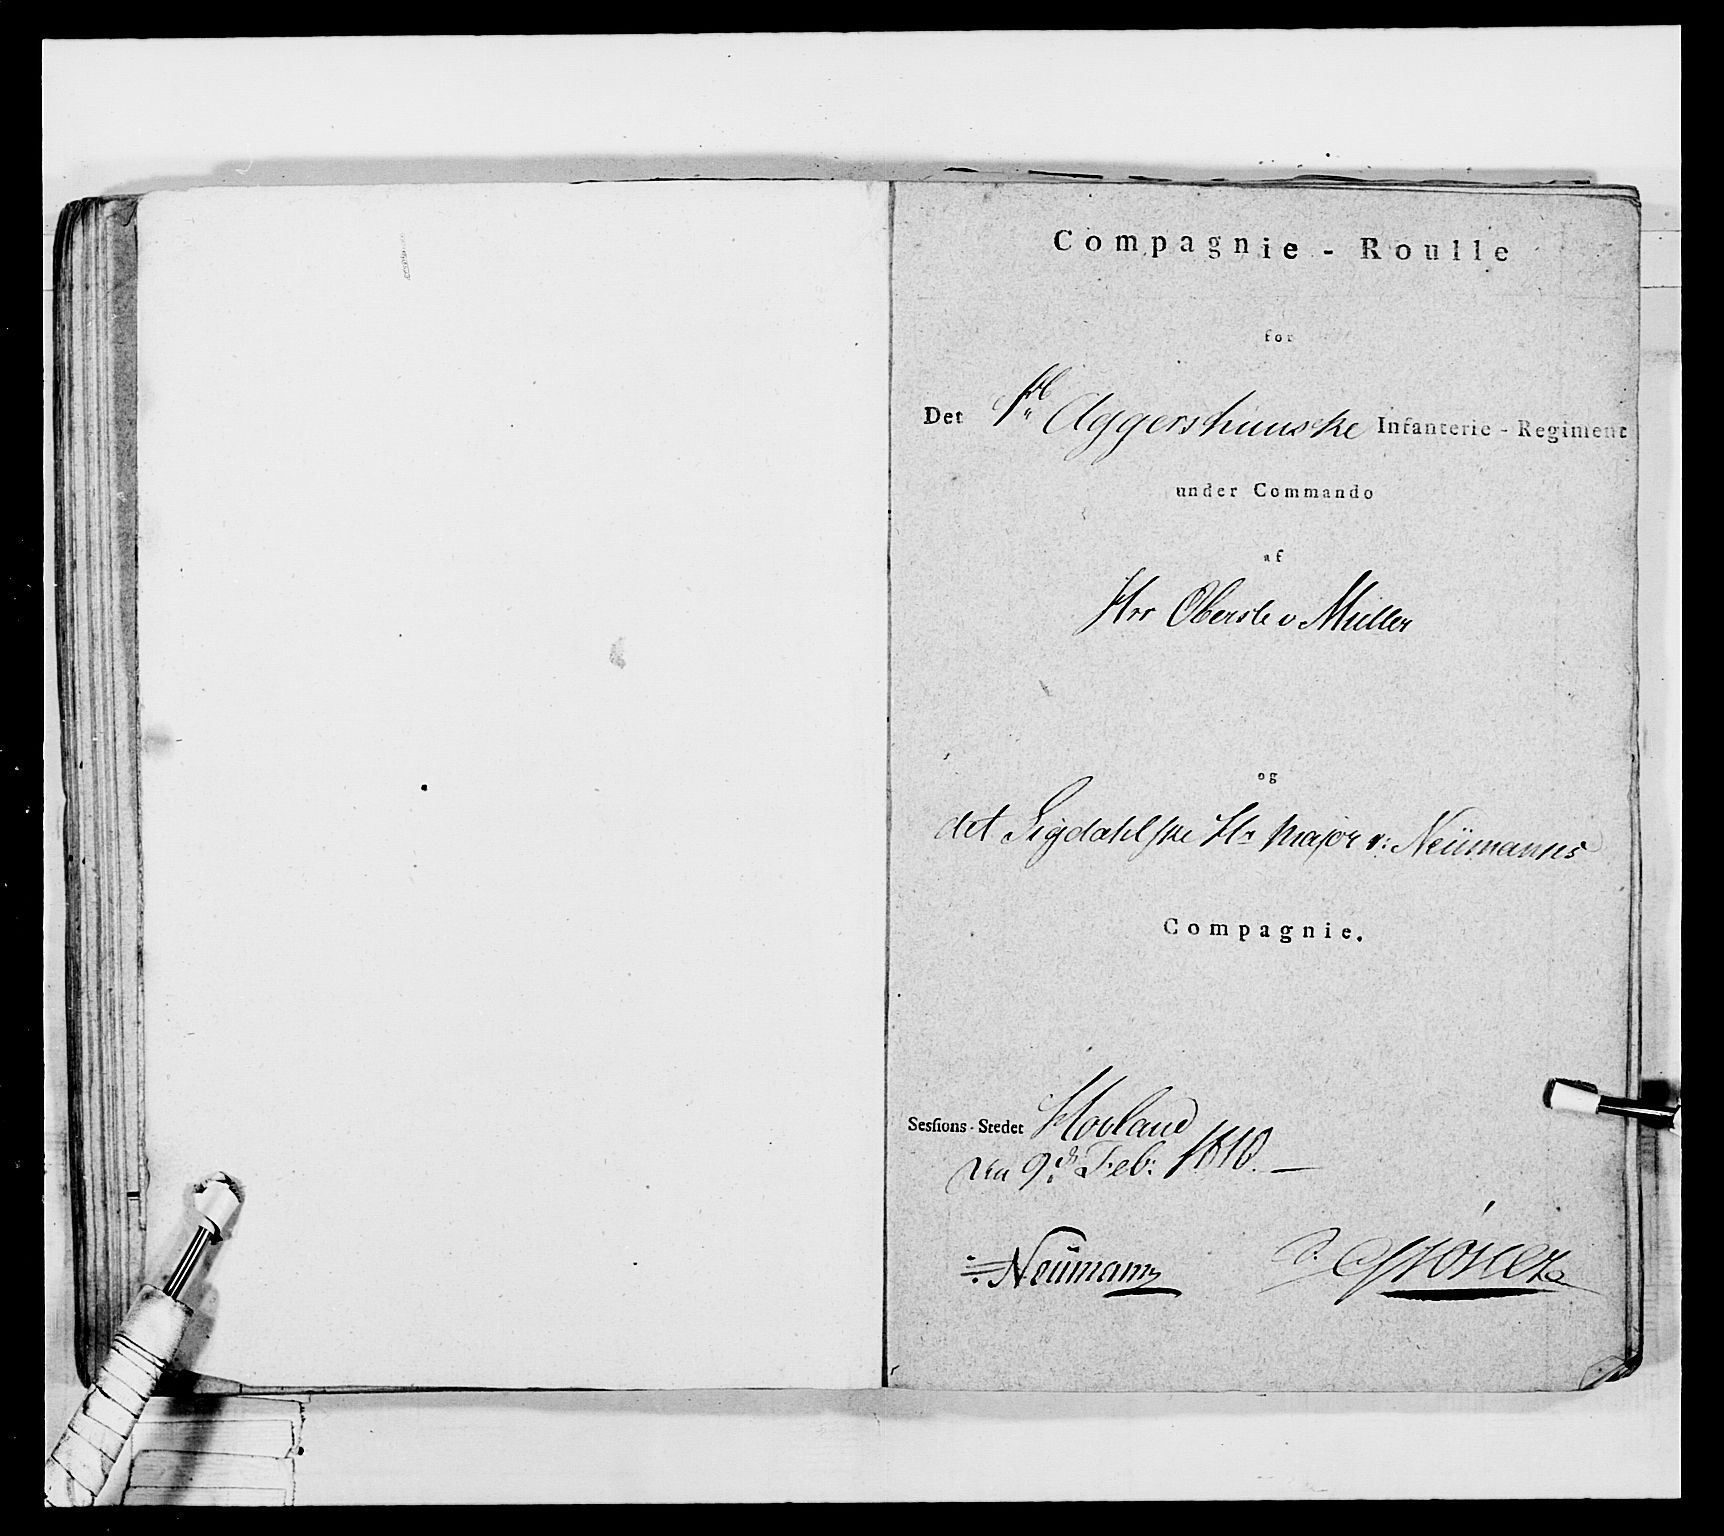 Compagnie - Roulle
for
Det Aggershuuske Infanterie - Regiment
under Commando
af
Hrr Oberste v Müller
og
det Sigdahlske Hr Major v: Neümanns
Compagnie.
Sessions-Stedet Hovland
den 9de Feb: 1810. —
Neümann